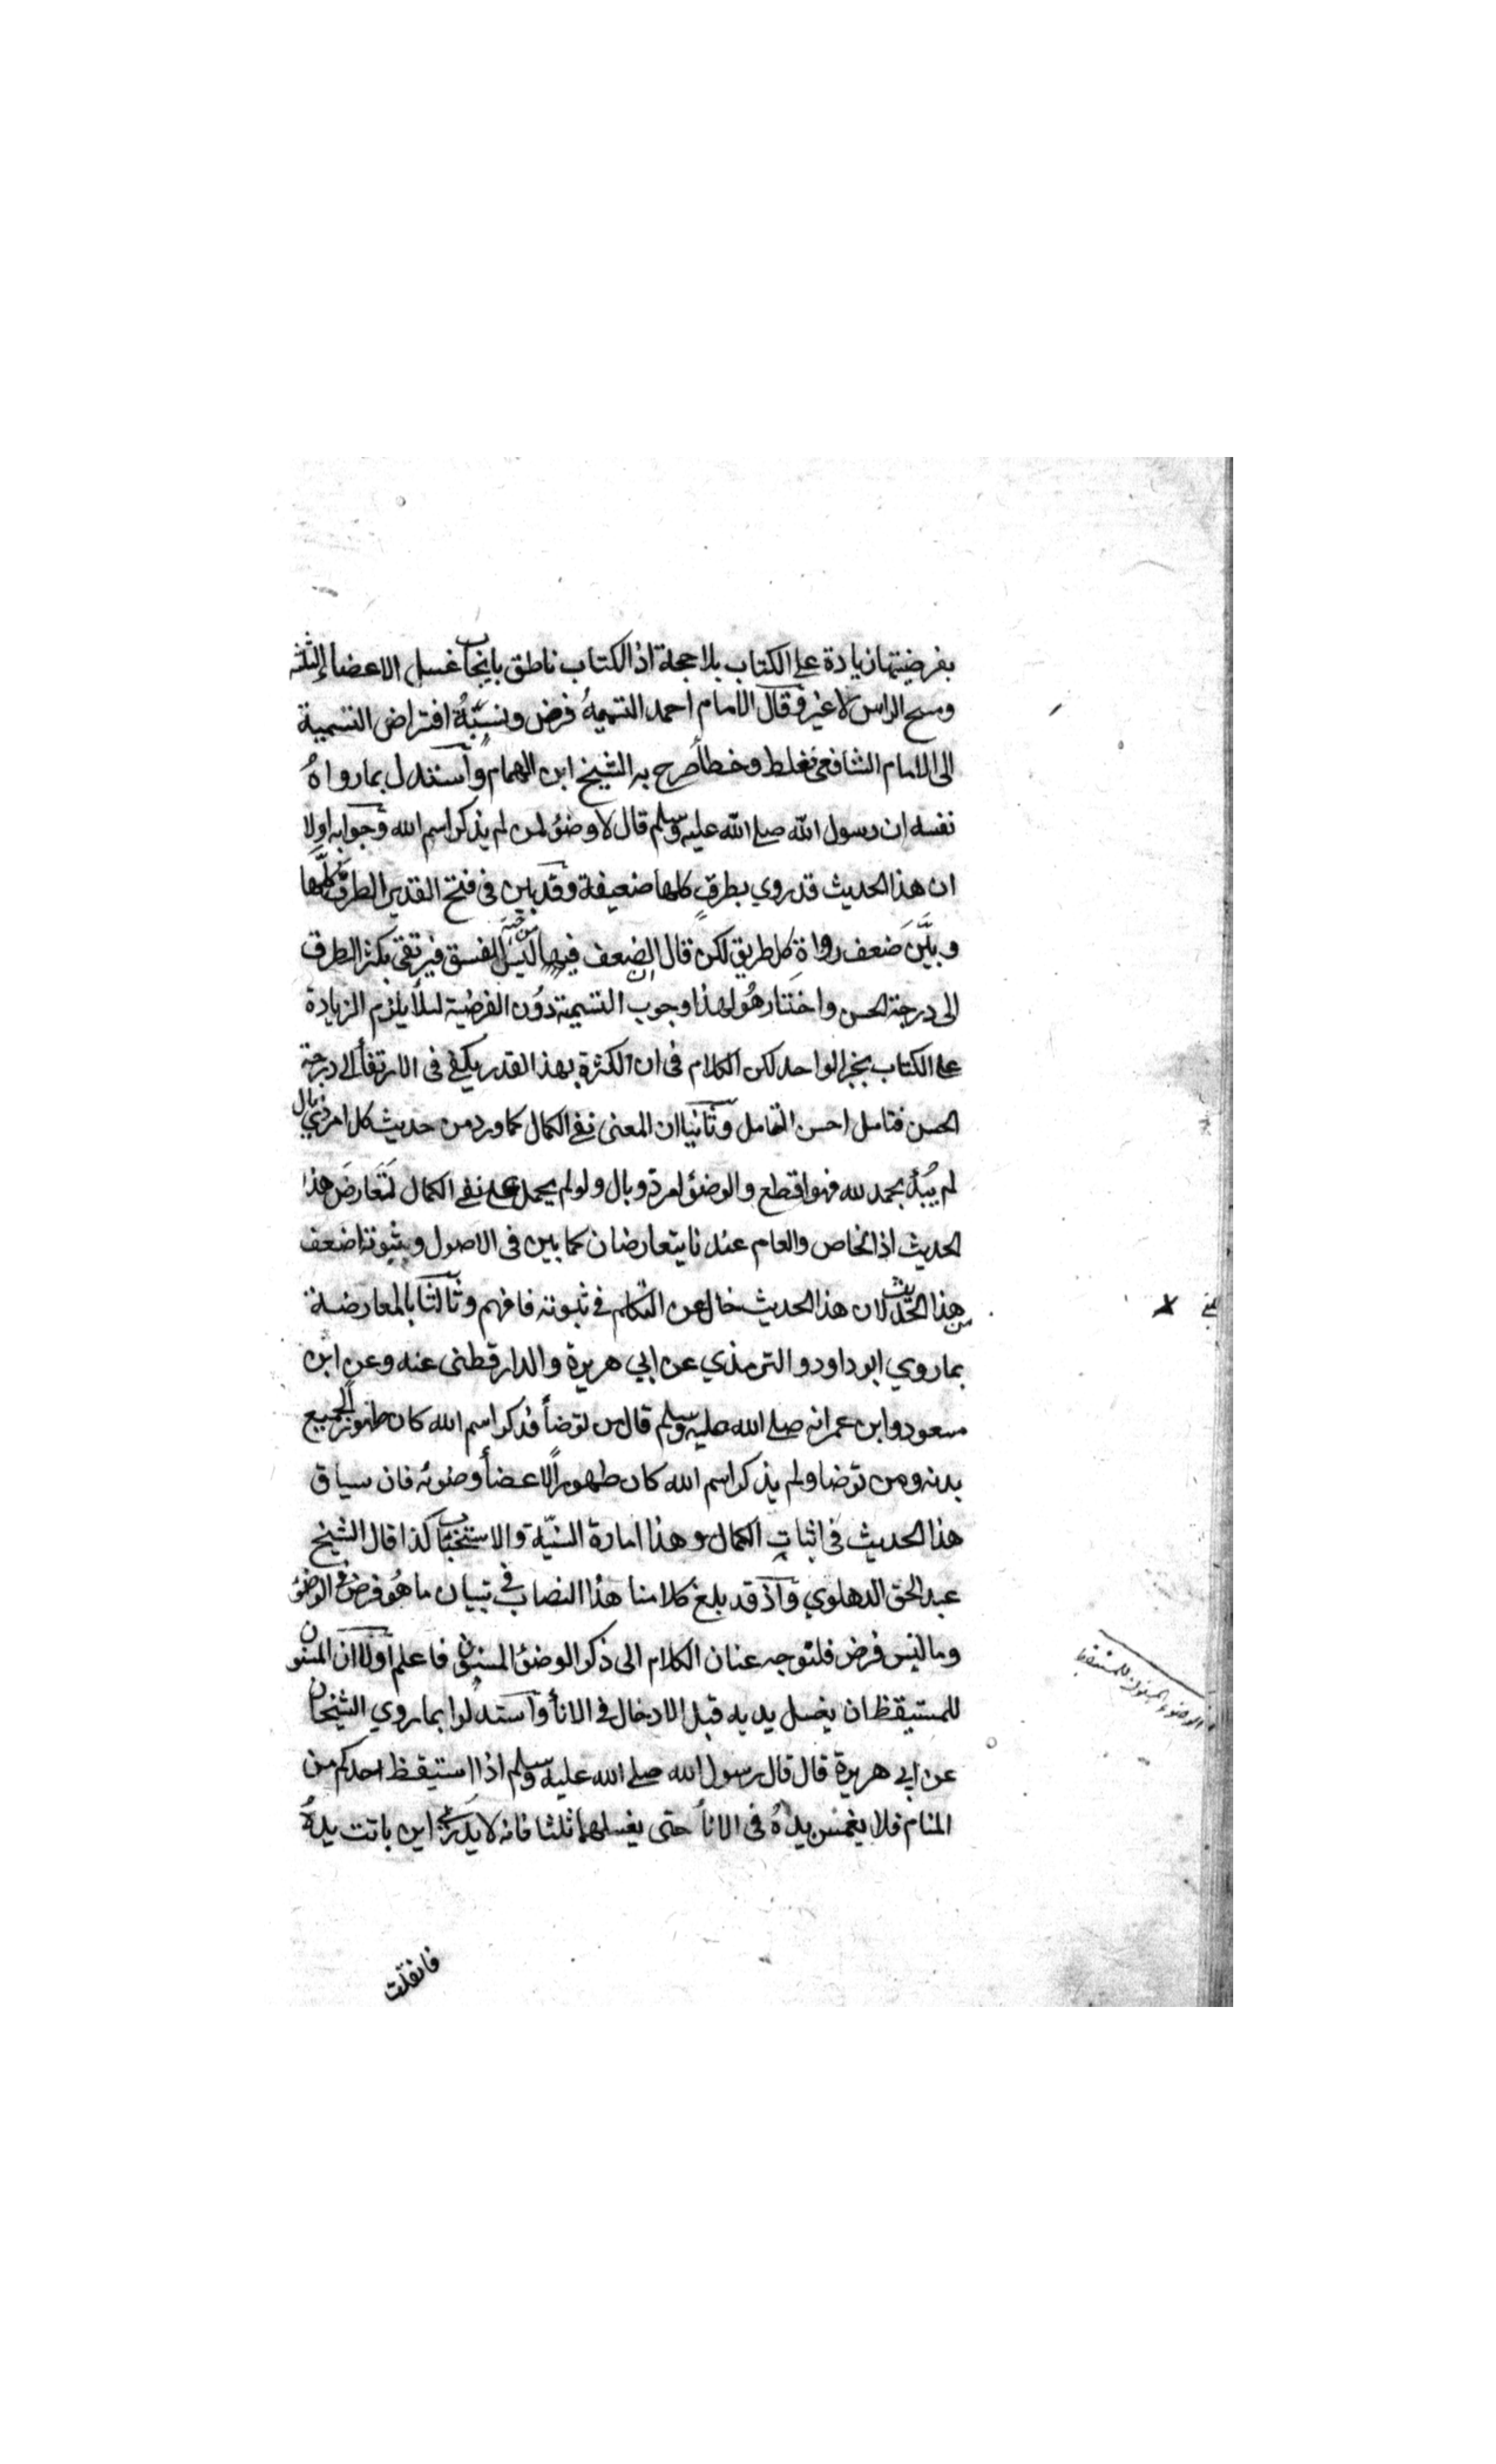 بفرضيتها زيادة على الكتاب بلا حجة اذ الكتاب ناطق بايجاب غسل الاعضاء الثلثه
ومسح الراس لا غير وقال الامام احمد التسميهُ فرض ونسبَتُهُ افتراض التسمية
الى الامام الشافعى فغلط وخطأ صرح به الشيخ ابن الهمام واستدل بما رواهُ
نفسه ان رسول الله صلى الله عليه وسلم قال لا وضؤ لمن لم يذكر اسم الله وجوابه اولا
ان هذا الحديث قد روي بطرقٍ كلها ضعيفة وقد بين فى فتح القدير الطرق كلها
وبيَّنَ ضعف رواة كل طريق لكن قال الضعف فيها ليس من جهة الفسق فيرتقى بكثر الطرق
الى درجة الحسن واختار هُو لهذا وجوب التسمية دُون الفرضية لئلا يلزم الزيادة
على الكتاب بخبر الواحد لكن الكلام فى ان الكثرة بهذ القدر يكفى فى الارتقأ الى درجة
الحسن فتامل احسن التامل وثانيا ان المعنى نفى الكمال كما ورد من حديث كل امر ذي بال
لم يُبدأ بحمد لله فهو اقطع والوضؤ امر ذو بال ولو لم يحمل على نفى الكمال لَتَعارضَ هذا
الحديث اذ الخاص والعام عندنا يتعارضان كما بين فى الاصول وثبوته اضعف
من هذا الحديث لان هذا الحديث خال عن التكلم فى ثبوته فافهم وثالثا بالمعارضة
بما روي ابو داود و الترمذي عن ابي هريرة والدارقطنى عنه وعن ابن
مسعود وابن عمر انه صلى الله عليه وسلم قال من توضأ فذكر اسم الله كان طهورًا لجميع
بدنه ومن توضا ولم يذكر اسم الله كان طهورًا لاعضأ وضوئه فان سياق
هذا الحديث فى اثبات الكمال وهذا امارة السنّية والاستحباب كذا قال الشيخ
عبد الحق الدهلوي وآذ قد بلغ كلامنا هذا النصاب فى تبيان ما هُو فرض فى الوضؤ
وما ليس فرض فلنوجه عنان الكلام الى ذكر الوضؤ المسنون فاعلم اولا ان المسنون
للمستيقظ ان يغسل يديه قبل الادخال فى الانأ واستدلوا بما روي الشيخان
عن ابي هريرة قال قال رسول الله صلى الله عليه وسلم اذا استيقظ احدكم من
المنام فلا يغمس يدهُ فى الانأ حتى يغسلهما ثلثا فانه لا يدري اين باتت يدهُ
الوضوء المسنون للمستيقظ
فانقلت